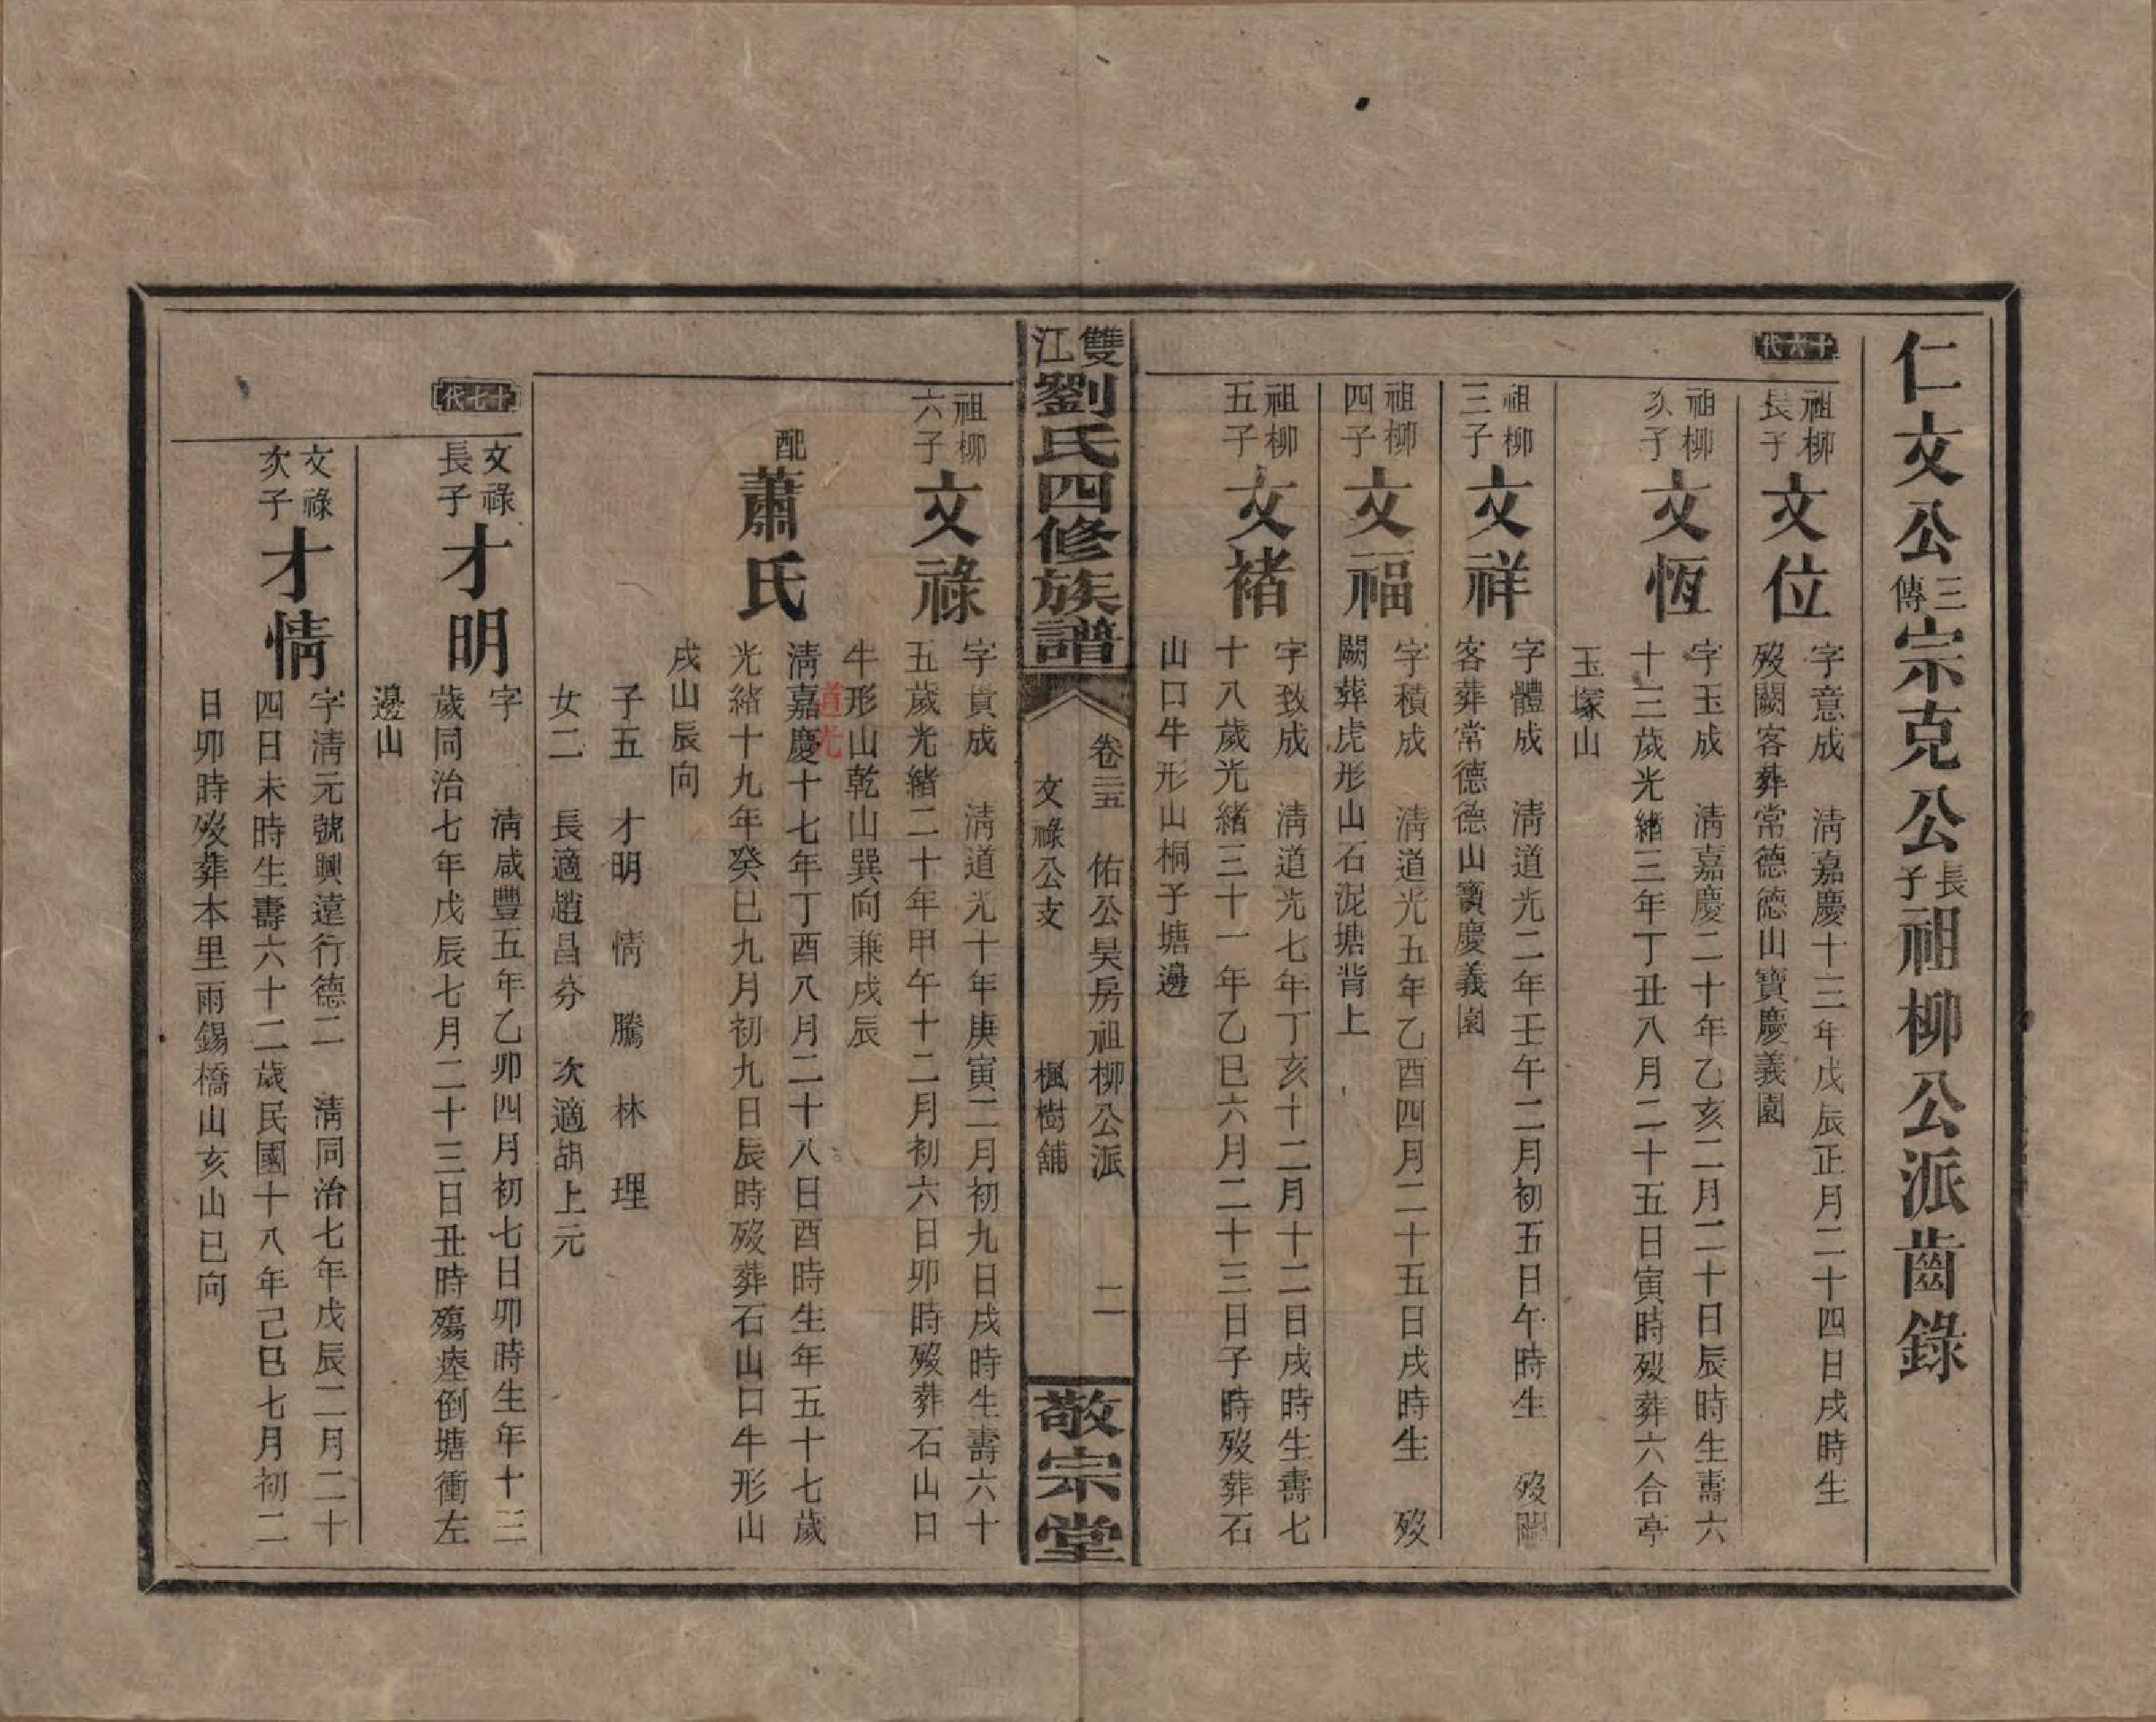 仁文公三傳宗克公長子祖柳公派齒錄
十六代
祖柳長子文位 字意成 清嘉慶十三年戊辰正月二十四日戌時生
歿闕客葬常德德山寶慶義園
祖柳次子文恆 字玉成 清嘉慶二十年乙亥二月二十日辰時生壽六
十三歲光緒三年丁丑八月二十五日寅時歿葬六合亭
玉塚山
祖柳三子文祥 字體成 清道光二年壬午二月初五日午時生 歿闕
客葬常德德山寶慶義園
祖柳四子文福 字積成 清道光五年乙酉四月二十五日戌時生 歿
闕葬虎形山石泥塘背上
祖柳五子文褚 字致成 清道光七年丁亥十二月十二日戌時生壽七
十八歲光緒三十一年乙巳六月二十三日子時歿葬石
山口牛形山桐子塘邊
雙江劉氏四修族譜
卷三五 佑公昊房祖柳公派 二
文祿公支 楓樹舖
敬宗堂
祖柳六子文祿 字貴成 清道光十年庚寅二月初九日戌時生壽六十
五歲光緒二十年甲午十二月初六日卯時歿葬石山口
牛形山乾山巽向兼戌辰
道光
配蕭氏 清嘉慶十七年丁酉八月二十八日酉時生年五十七歲
光緒十九年癸巳九月初九日辰時歿葬石山口牛形山
戌山辰向
子五 才明 情 騰 林 理
女二 長適趙昌芬 次適胡上元
十七代
文祿長子才明 字 清咸豐五年乙卯四月初七日卯時生年十三
歲同治七年戊辰七月二十三日丑時殤瘞倒塘衝左
邊山
文祿次子才情 字清元號興遠行德二 清同治七年戊辰二月二十
四日未時生壽六十二歲民國十八年己巳七月初二
日卯時歿葬本里雨錫橋山亥山巳向